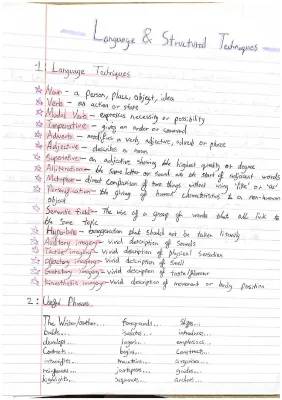 Language & Structural Techniques
1: Language Techniques
Noun - a person, place, object, idea
Verb - an action or state
Modal Verb - expresses necessity or possibility
Imperative - gives an order or command
Adverb - modifies a verb, adjective, adverb or phrase
Adjective - describes a noun
Superlative - an adjective showing the highest quality or degree
Alliteration - the same letter or sound at the start of adjacent words
Metaphor - direct comparison of two things without using 'like' or 'as'
Personification - the giving of human characteristics to a non-human
object
Semantic field - The use of a group of words that all link to
the same topic
Hyperbole - exaggeration that should not be taken literally
Auditory imagery - vivid description of sounds
Tactile imagery - vivid description of physical sensation
Olfactory imagery - vivid description of smell
Gustatory imagery - vivid description of taste/flavour
Kinesthetic imagery - vivid description of movement or body position
2: Useful Phrases
The Writer/author... foregrounds... shifts...
builds... introduces...
develops... layers... emphasises...
Contrasts... begins... constructs...
intensifies...
heightens... juxtaposes... guides...
highlights...